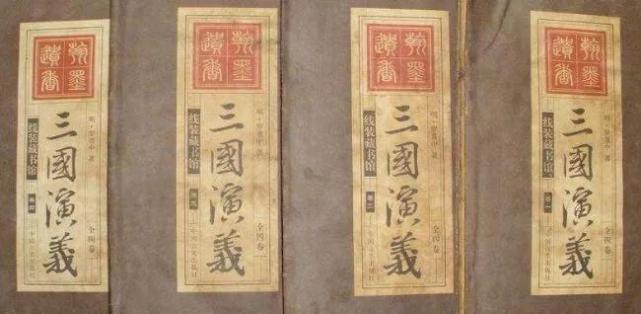 翰墨遗香
明·罗贯中 著
三國演義
线装藏书馆
全四卷
中国文史出版社
翰墨遗香
明·罗贯中 著
三國演義
线装藏书馆
全四卷
翰墨遗香
明·罗贯中 著
三國演義
线装藏书馆
卷二
全四卷
翰墨遗香
明·罗贯中 著
三國演義
线装藏书馆
卷一
全四卷